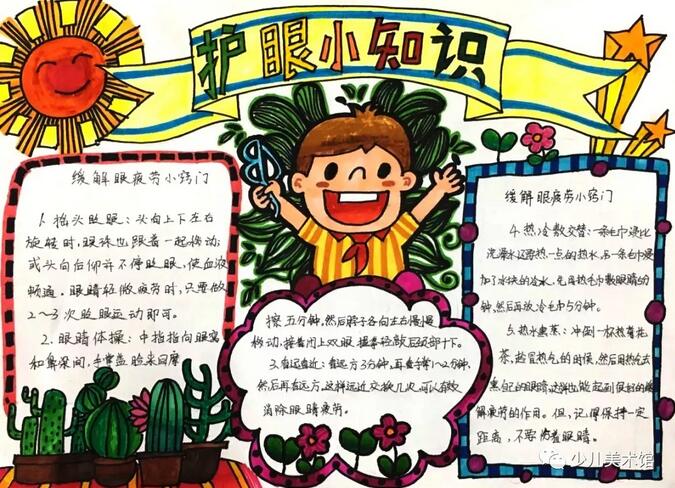 护眼小知识
缓解眼疲劳小窍门
1. 摇头眨眼：头向上下左右
旋转时，眼珠也跟着一起移动；
或头向后仰并不停眨眼，使血液
畅通。眼睛轻微疲劳时，只要做
2～3次眨眼运动即可。
2. 眼睛体操：中指指向眼窝
和鼻梁间，手掌盖脸来回摩
擦五分钟，然后脖子各向左右慢慢
移动，接着闭上双眼，握拳轻敲后颈部十下。
3. 看远看近：看远方3分钟，再看手掌1~2分钟，
然后再看远方，这样远近交换几次，可以有效
消除眼睛疲劳。
缓解眼疲劳小窍门
4. 热冷敷交替：一条毛巾浸比
洗澡水还要热一点的热水，另一条毛巾浸
加了冰块的冷水，先用热毛巾敷眼睛约
钟，然后再放冷毛巾5分钟。
5. 热水熏蒸：冲倒一杯热菊花
茶，趁冒热气的时候，然后用热气去
熏自己的眼睛，这样也能起到很好的缓
解疲劳的作用。但，记得保持一定
距离，不要伤着眼睛。
少川美术馆